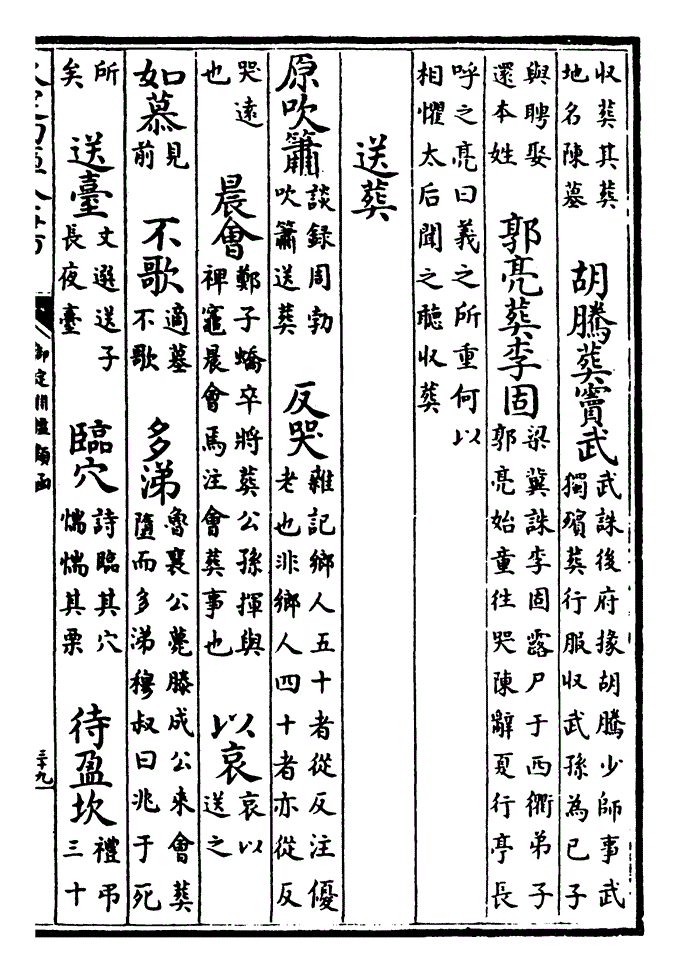 收葬其葬地名陳墓 胡騰葬竇武 武誅後府掾胡騰少師事武獨殯葬行服收武孫為已子
與聘娶還本姓 郭亮葬李固 梁冀誅李固露尸于西衢弟子郭亮始童往哭陳辭夏行亭長
呼之亮曰義之所重何以相懼太后聞之聽收葬
送葬
原吹簫 談錄周勃吹簫送葬 反哭 雜記鄉人五十者從反注優老也非鄉人四十者亦從反
哭遠也 晨會 鄭子蟜卒將葬公孫揮與裨竈晨會焉注會葬事也 以哀 哀以送之
如慕 見前 不歌 適墓不歌 多涕 魯襄公薨滕成公來會葬隨而多涕穆叔曰兆于死
所矣 送臺 文選送子長夜臺 臨穴 詩臨其穴惴惴其栗 待盈坎 禮弔三十
御定淵鑑類函
三十九